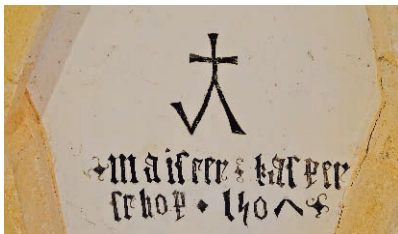 maister kasper
schop 1507